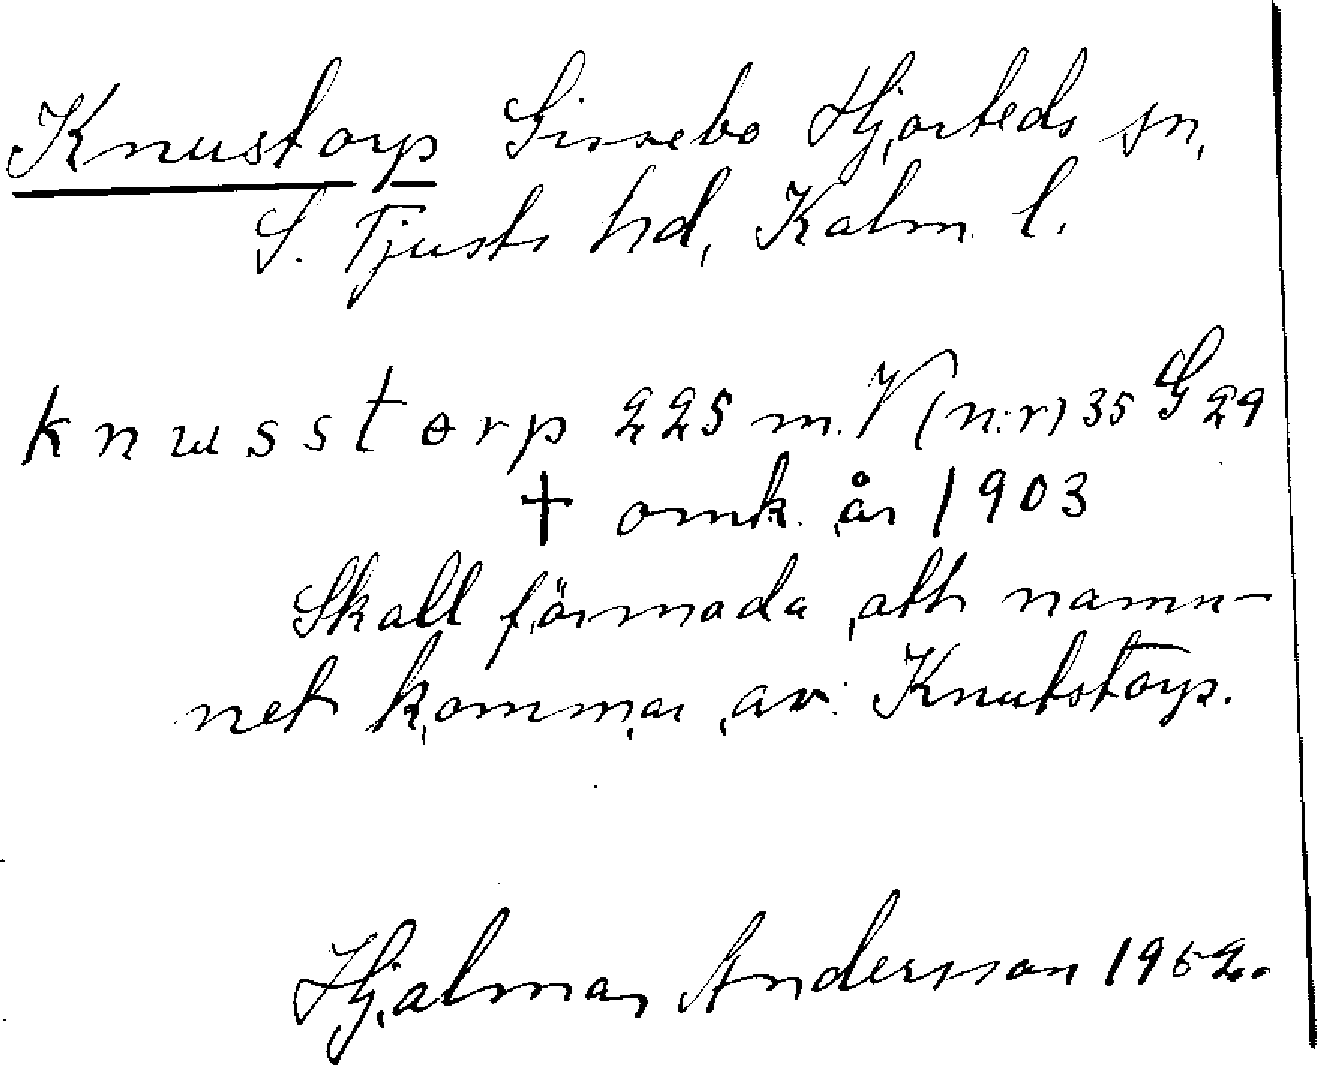 Knustorp Sinnebo Hjorteds sn,
S. Tjusts hd, Kalm. l.
knusstorp 225 m. V (n:r) 35 G 29
† omk. år 1903
Skall förmoda att namn-
net kommer av: Knutstorp.
Hjalmar Andersson 1952.